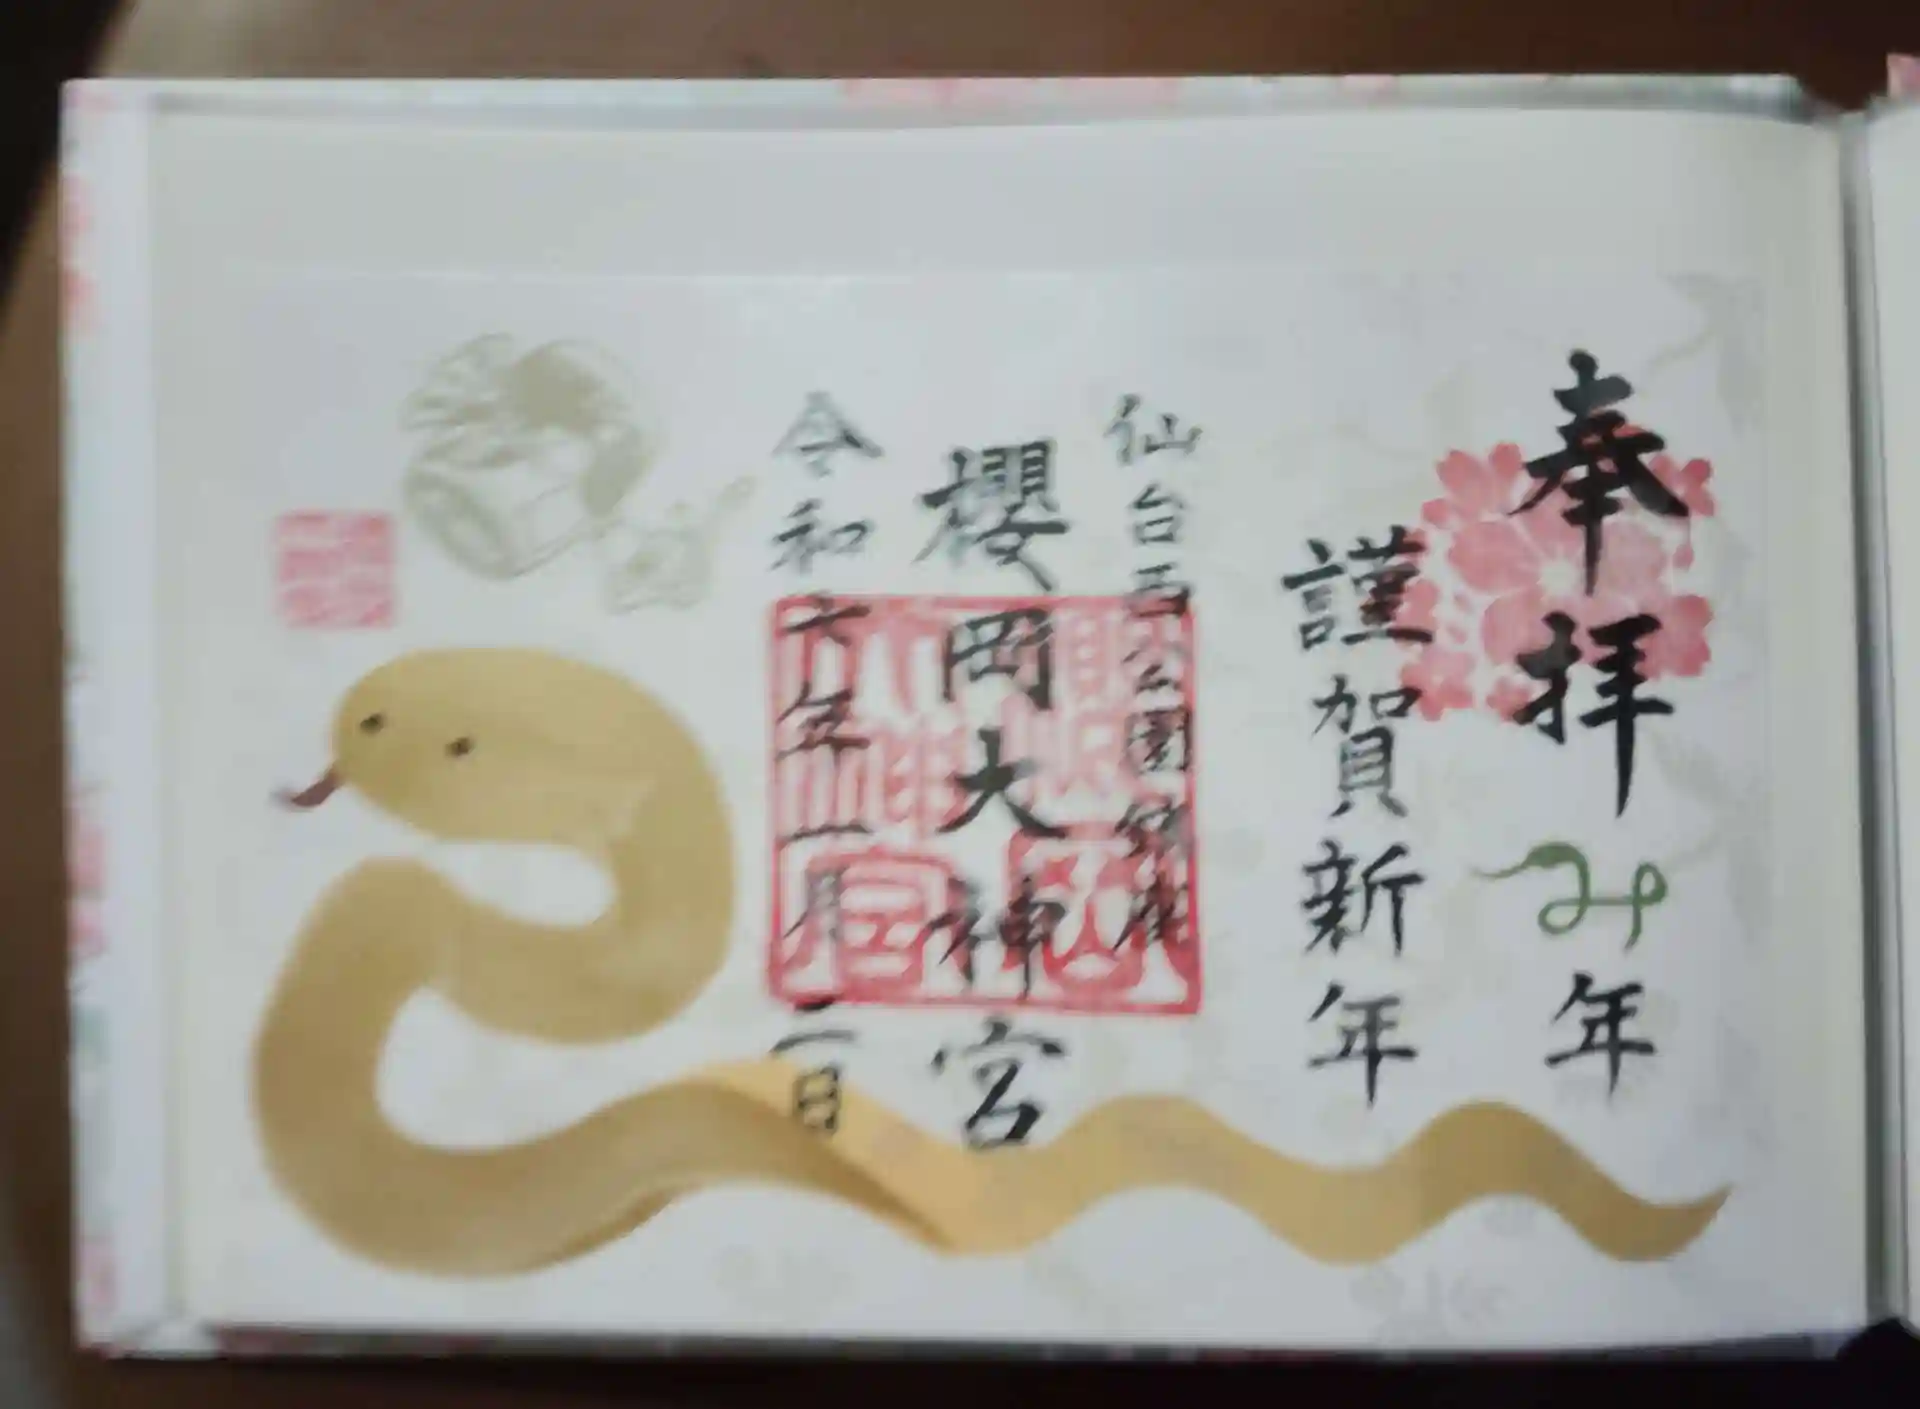 奉拝 み年
謹賀新年
仙台西公園鎮座
櫻岡大神宮
令和六年一月二日